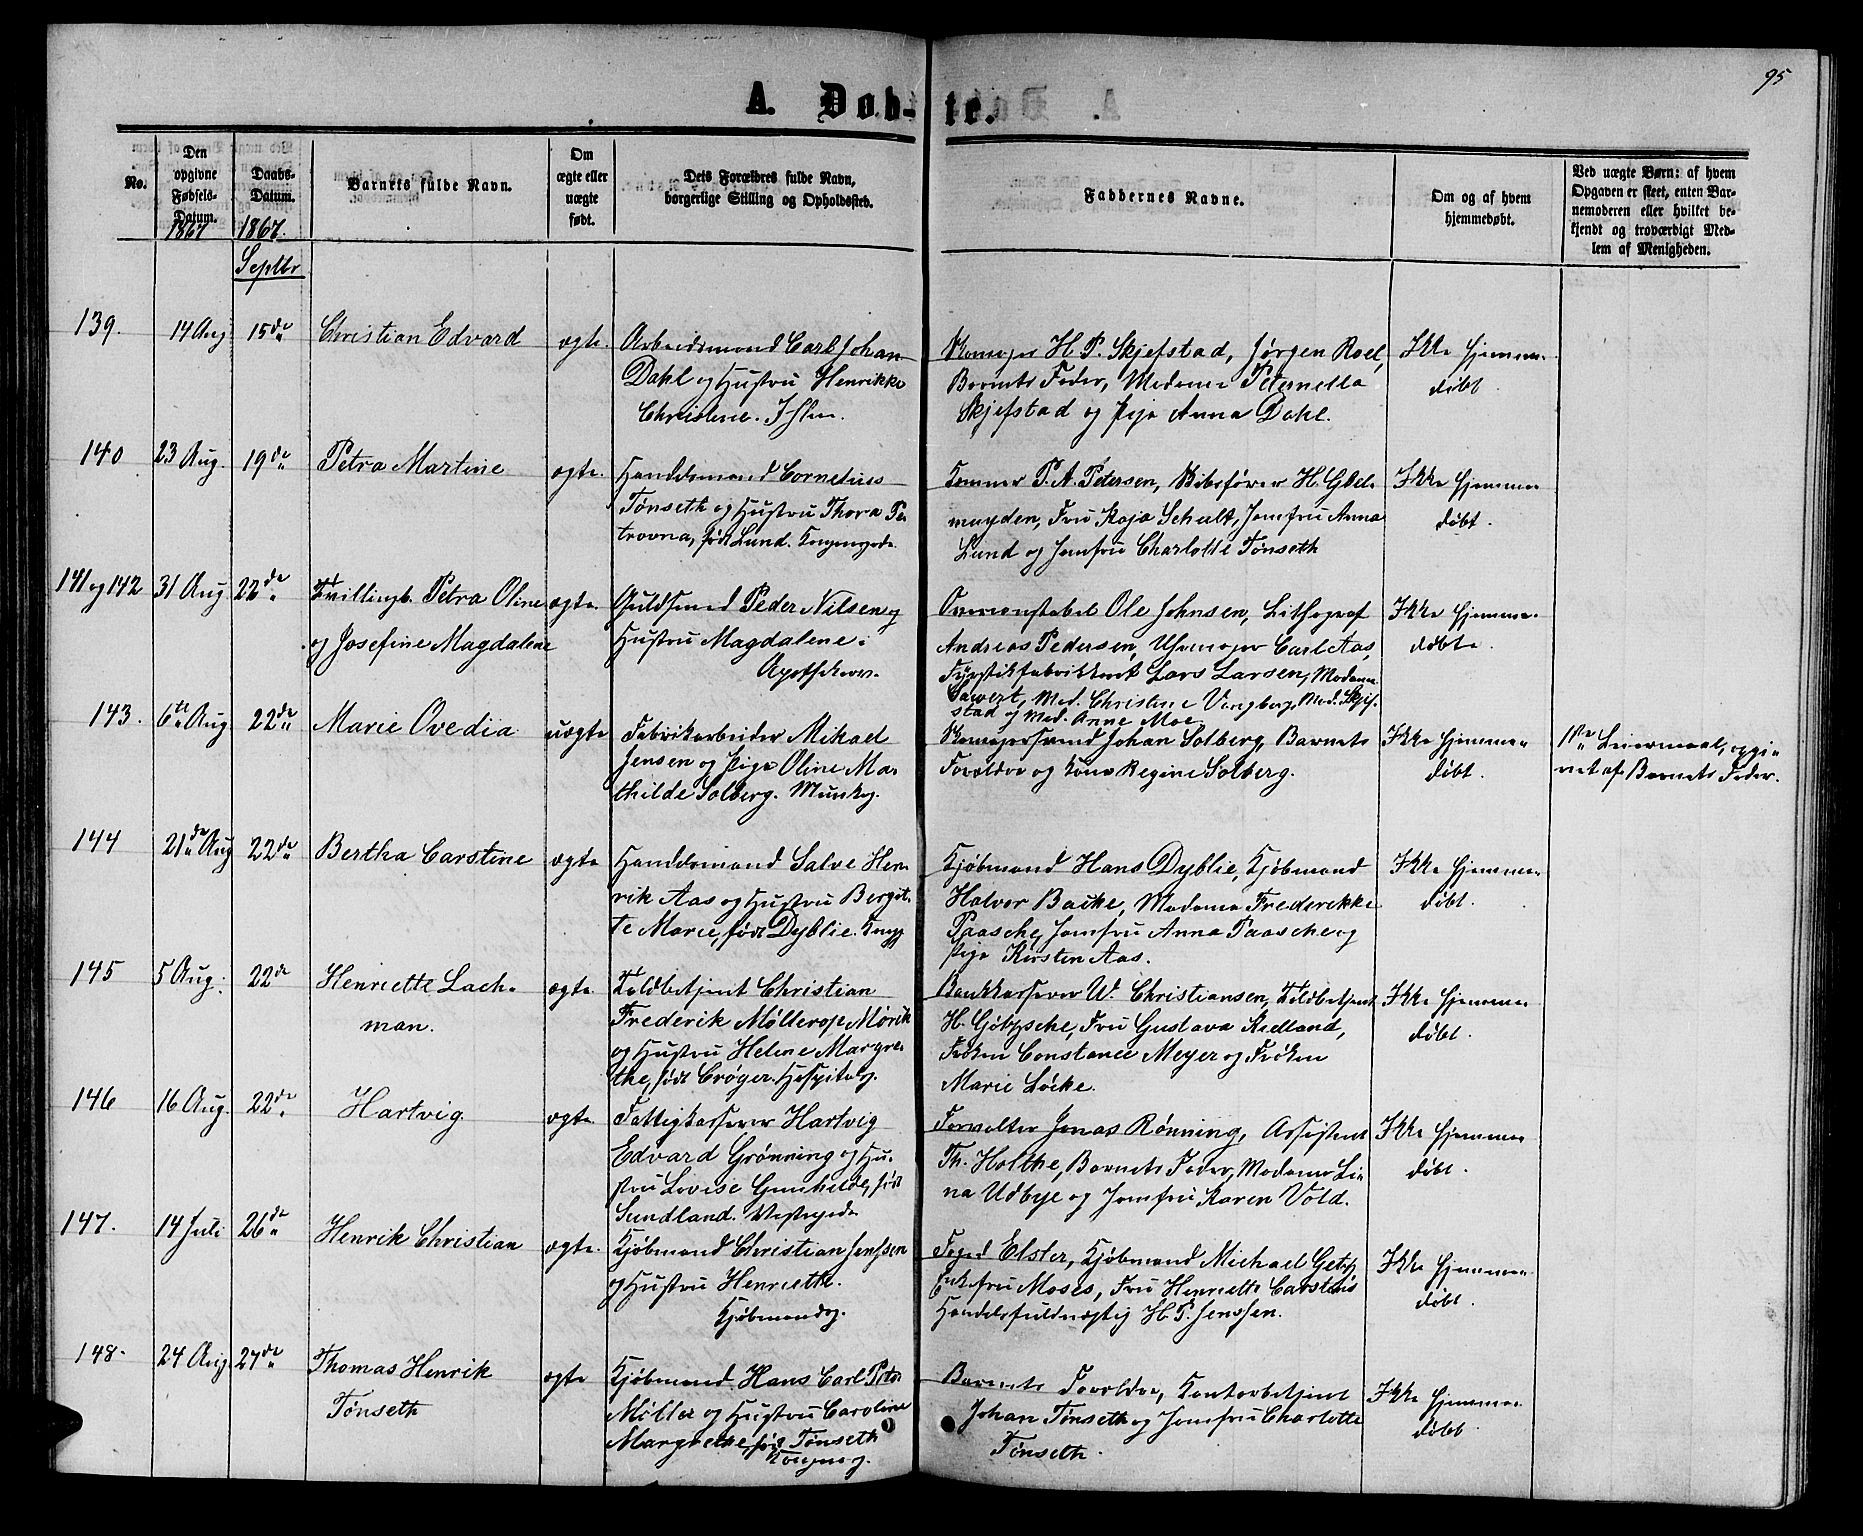 95
A. Døb-te.
No.
Den opgivne Fødsels-Datum.
Daabs-Datum.
Barnets fulde Navn.
Om ægte eller uægte født.
Dets Forældres fulde Navn, borgerlige Stilling og Opholdssted.
Faddernes Navne.
Om og af hvem hjemmedøbt.
Ved uægte Børn: af hvem Opgaven er skeet, enten Barnemoderen eller hvilket bekjendt og troværdigt Medlem af Menigheden.
1867 1867.
Septbr
139. 14 Aug 15de Christian Edvard ægte. Arbeidsmand Carl Johan
Dahl og Hustru Henrikke
Christine. Ihlen.
H. P. Skjefstad, Jørgen Roel,
Barnets Fader, Madame Peternella
Skjefstad og Pige Anna Dahl.
Ikke hjemme-
døbt.
140 23 Aug. 19de Petra Martine ægte. Handelsmand Cornelius
Tønseth og Hustru Thora Pe-
trovna, født Lund. Kongensgade.
P. A. Petersen, H.
Fru Kaja Schult, Jomfru Anna
Lund og Jomfru Charlotte Tønseth
Ikke hjemme-
døbt.
141 og 142 31 Aug 22de Tvillingb. Petra Oline
og Josefine Magdalene
ægte. Guldsmed Peder Nilsen og
Hustru Magdalene i
Ole Johnsen, Lithograf
Andreas Pedersen, Uhrmager Carl Aas,
Fyrstikfabrikant Lars Larsen, Madame
Sawert, Mad. Christine Vingberg, Mad. Skjef-
stad og Mad. Anne Moe
Ikke hjemme-
døbte.
143. 6te Aug 22de Marie Ovedia uægte Fabrikarbeider Mikael
Jensen og Pige Oline Mar-
thilde Solberg. Munkeg.
Johan Solberg, Barnets
Forældre og Kone Regine Solberg.
Ikke hjemme-
døbt.
1ste Leiermaal, opgi-
vet af Barnets Fader.
144 21de Aug 22de Bertha Carstine ægte Handelsmand Salve Hen-
rik Aas og Hustru Bergit-
te Marie, født Dyblie.
Kjøbmand Hans Dyblie, Kjøbmand
Halvor Backe, Madame Frederikke
Paasche, Jomfru Anna Paasche og
Pige Kirsten Aas.
Ikke hjemme-
døbt.
145 5 Aug. 22de Henriette Lach-
man.
ægte. Toldbetjent Christian
Frederik Møllerop Mørik
og Hustru Helene Margre-
the, født Crøger. Hospitalsg.
Bankkasserer W. Christiansen, Toldbetjent
H. Fru Gustava Kielland,
Frøken Constance Meyer og Frøken
Marie Løcke.
Ikke hjemme-
døbt.
146 16 Aug. 22de Hartvig ægte. Fattigkasserer Hartvig
Edvard Grønning og Hu-
stru Lovise Gunhilde, født
Sundland. Vestregade
Forvalter Jonas Rønning, Assistent
Th. Holthe, Barnets Fader, Madame Li-
na Udbye og Jomfru Karen Vold.
Ikke hjemme-
døbt.
147. 14 Juli 26de Henrik Christian ægte. Kjøbmand Christian Jenssen
og Hustru Henriette.
Kjøbmandsg.
Foged Elster, Kjøbmand Michael Getz,
Enkefru Moses, Fru Henriette Carstens
Handelsfuldmægtig H. P. Jenssen.
Ikke hjemme-
døbt.
148. 24 Aug. 27de Thomas Henrik
Tønseth
ægte Kjøbmand Hans Carl Peter
Møller og Hustru Caroline
Margrethe, født Tønseth
Kongensg.
Barnets Forældre, Kontorbetjent
Johan Tønseth og Jomfru Charlotte
Tønseth.
Ikke hjemme-
døbt.